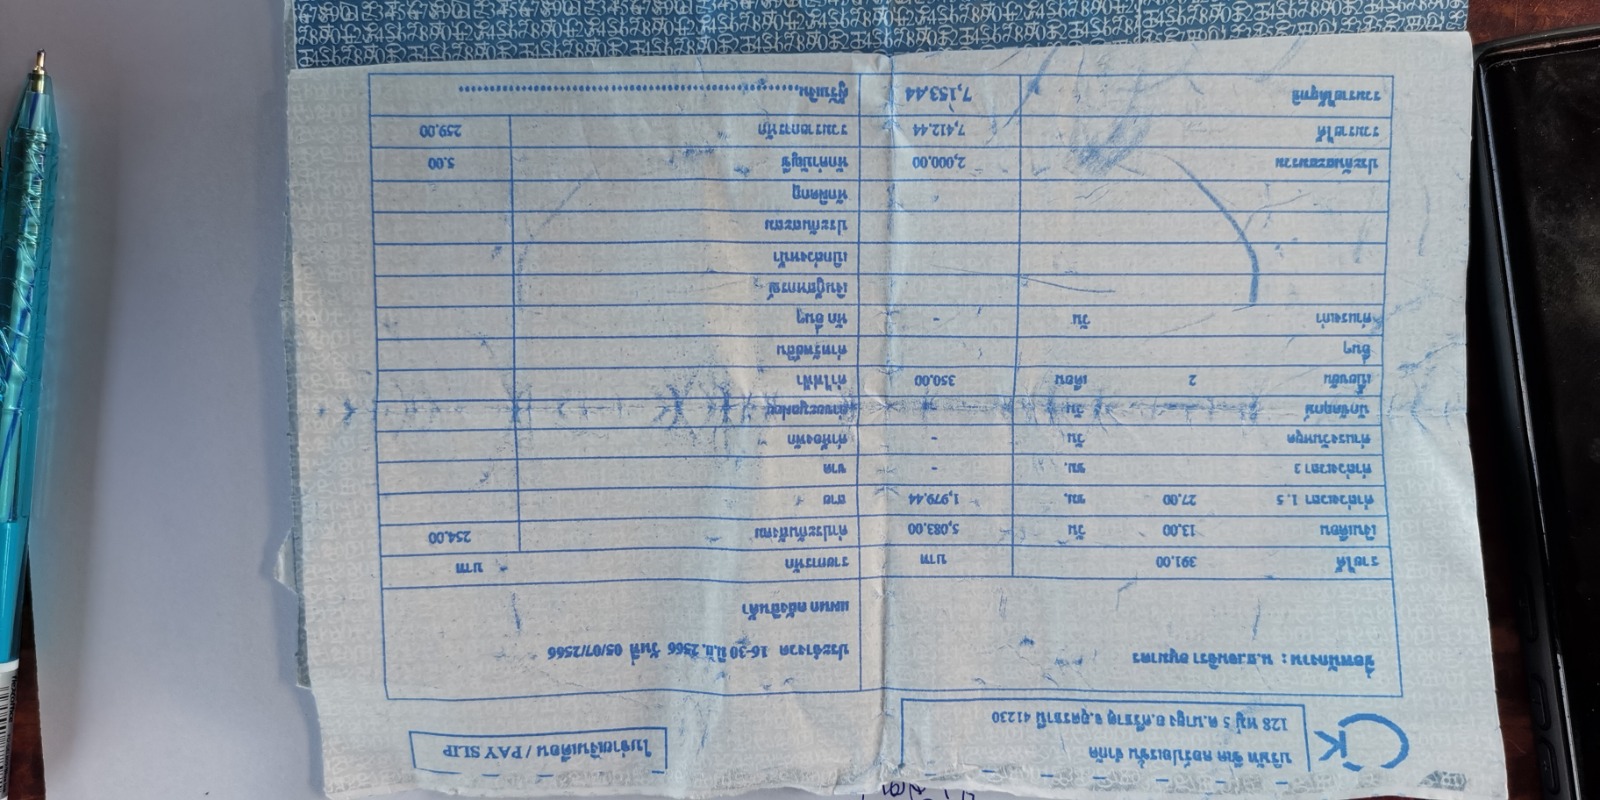 บริษัท ซีเค คอร์ปอเรชั่น จำกัด
128 หมู่ 5 ต.นายูง อ.ศรีธาตุ จ.อุดรธานี 41230
ใบจ่ายเงินเดือน / PAY SLIP
ชื่อพนักงาน : น.ส.
ประจำงวด 16-30 มิ.ย. 2566 วันที่ 05/07/2566
แผนก คลังสินค้า
รายได้ 391.00 บาท รายการหัก บาท
เงินเดือน 13.00 วัน 5,083.00 ค่าประกันสังคม 254.00
ค่าล่วงเวลา 1.5 27.00 ชม. 1,979.44 สาย
ค่าล่วงเวลา 3 ชม. - ขาด
ค่าแรงวันหยุด วัน - ค่าห้องพัก
นักขัตฤกษ์ วัน
เบี้ยขยัน 2 เดือน 350.00 ค่าไฟฟ้า
อื่นๆ
ค่าแรงเก่า วัน - หัก อื่นๆ
เงินกู้สหกรณ์
เบิกล่วงหน้า
ประกันสะสม
ประกันสะสมรวม 2,000.00 หักค่าบัญชี 5.00
รวมรายได้ 7,412.44 รวมรายการหัก 259.00
รวมรายได้สุทธิ 7,153.44 ผู้รับเงิน